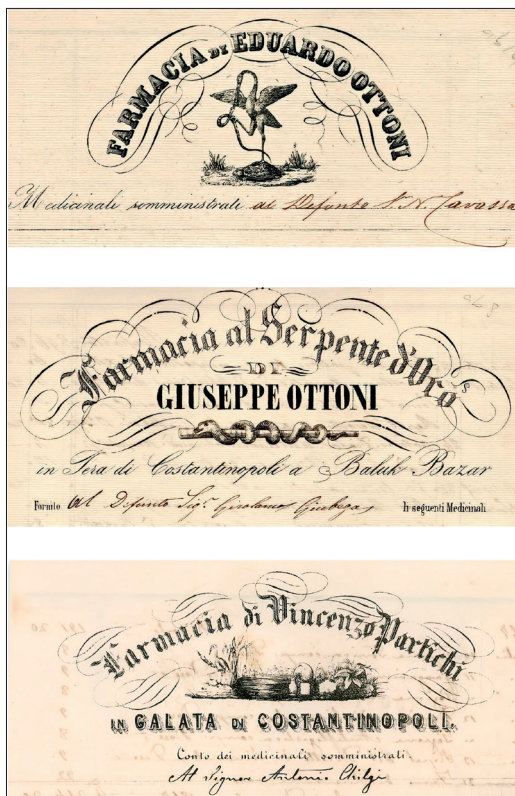 FARMACIA DI EDUARDO OTTONI
Medicinali somministrati al Defonto
Farmacia al Serpente d'Oro
DI
GIUSEPPE OTTONI
in Pera di Costantinopoli a Baluk Bazar
Fornito al Defunto Sigr. Girolamo li seguenti Medicinali
Farmacia di Vincenzo Partichi
IN GALATA DI COSTANTINOPOLI.
Conto dei medicinali somministrati.
Al Signor Antonio